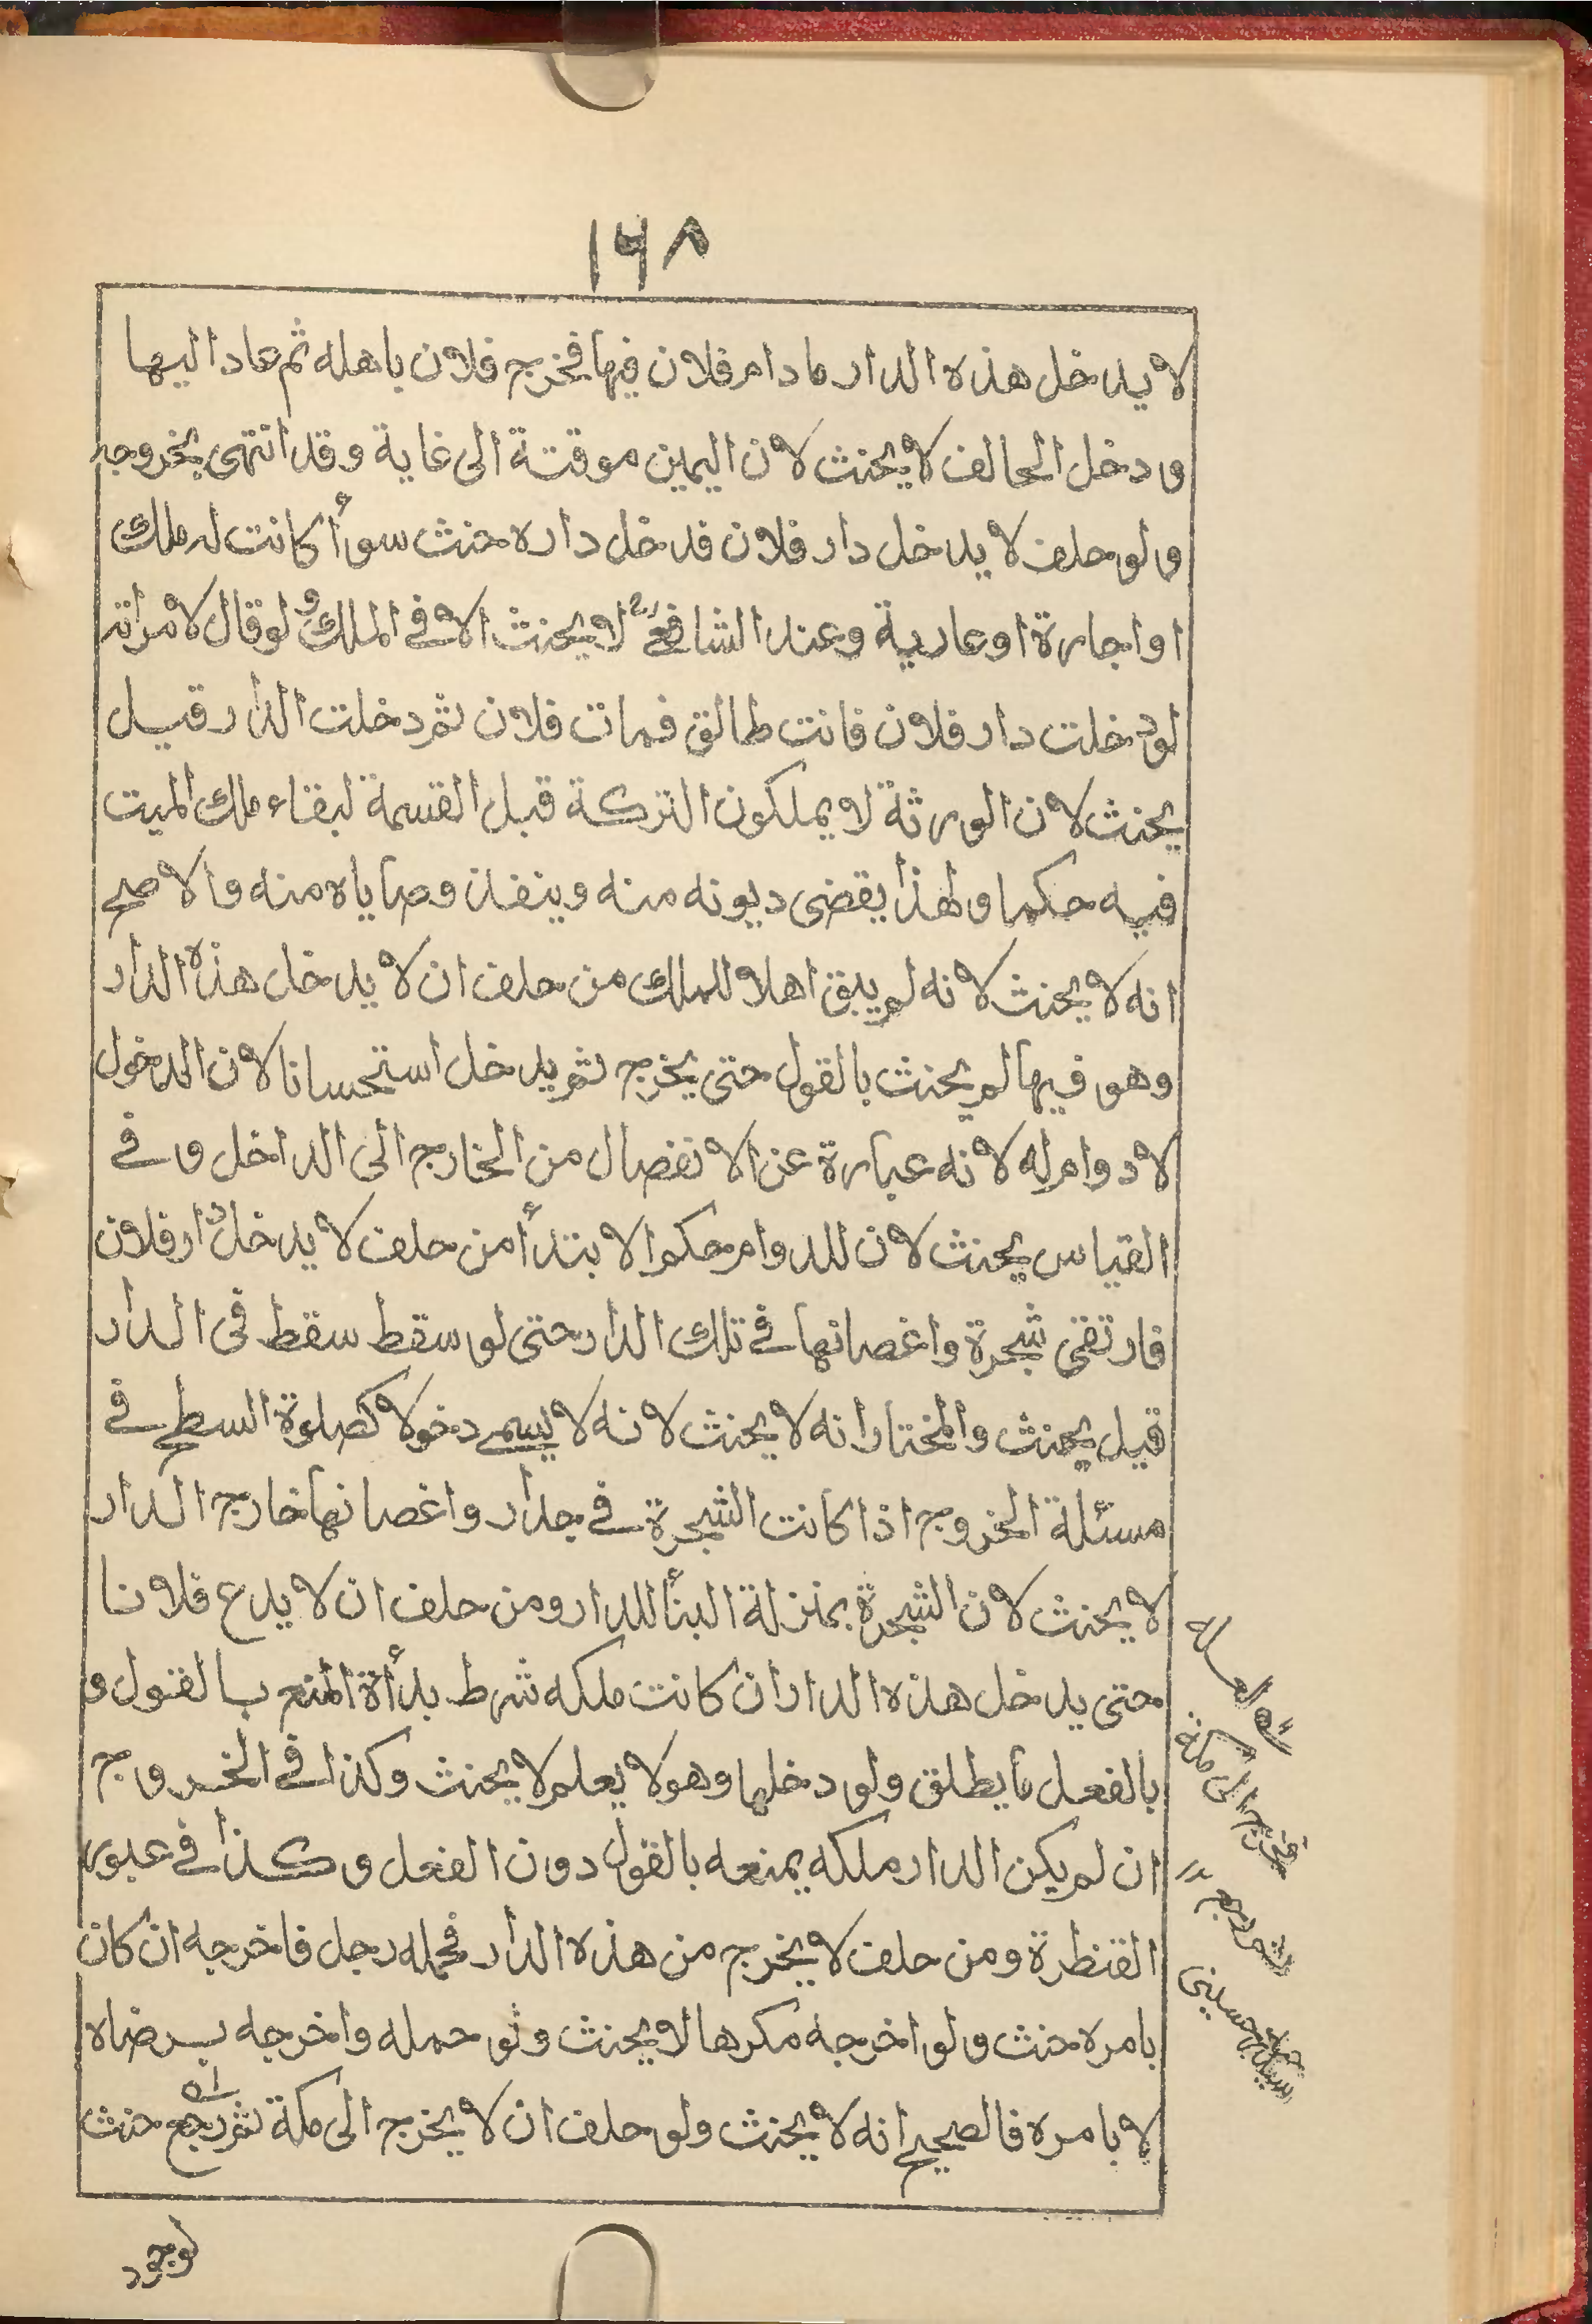 ١٦٨
لا يدخل هذه الدار مادام فلان فيها فخرج فلان باهله ثم عاد اليها
ودخل الحالف لا يحنث لان اليمين موقتة الى غاية وقد انتهى بخروجه
ولو حلف لا يدخل دار فلان فدخل داره حنث سوأ كانت له ملك
او اجارة او عارية وعند الشافعي لا يحنث الا في الملك ولو قال لامرأته
لو دخلت دار فلان فانت طالق فمات فلان ثم دخلت الدار قيل
يحنث لان الورثة لا يملكون التركة قبل القسمة لبقاء ملك الميت
فيه حكما ولهذا يقضى ديونه منه وينفذ وصاياه منه والاصح
انه لا يحنث لانه لم يبق اهلا للملك من حلف ان لا يدخل هذه الدار
وهو فيها لم يحنث بالقول حتى يخرج ثم يدخل استحسانا لان الدخول
لا دوام له لانه عبارة عن الانفصال من الخارج الى الداخل وفي
القياس يحنث لان للدوام حكم الابتدأ من حلف لا يدخل دار فلان
فارتقى شجرة واغصانها في تلك الدار حتى لو سقط سقط في الدار
قيل يحنث والمختار انه لا يحنث لانه لا يسمى دخولا كصلوة السطح في
مسئلة الخروج اذا كانت الشجرة في جدار واغصانها خارج الدار
لا يحنث لان الشجرة بمنزلة البنأ للدار ومن حلف ان لا يدع فلانا
حتى يدخل هذه الدار ان كانت ملكه شرط بدأة المنع بالقول و
بالفعل ما يطلق ولو دخلها وهو لا يعلم لا يحنث وكذا في الخروج
ان لم يكن الدار ملكه يمنعه بالقول دون الفعل وكذا في عبور
القنطرة ومن حلف لا يخرج من هذه الدار فحمله رجل فاخرجه ان كان
بامره حنث ولو اخرجه مكرها لا يحنث ولو حمله واخرجه برضاه
لا بامره فالصحيح انه لا يحنث ولو حلف ان لا يخرج الى مكة ثم رجع حنث
لوجود